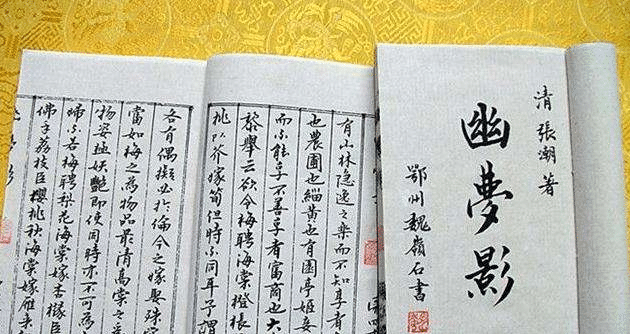 清 張潮 著
幽夢影
鄂州魏嶺石書
有山林隱逸之樂而不知享者
也農圃也緇黃也有園亭姬妾
而不能享不善享者富商也大
黎舉云欲令梅聘海棠橙棖
桃以芥嫁筍但時不同耳予謂
各有偶擬必於倫今之嫁娶殊
當如梅之為物品最清高棠之
物姿極妖艷即使同時亦不可為
歸不若梅聘梨花海棠嫁杏櫞
佛手荔枝臣櫻桃秋海棠嫁雁來
影